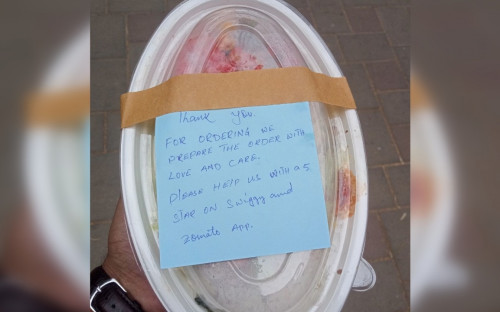 Thank you.
FOR ORDERING WE
PREPARE THE ORDER WITH
LOVE AND CARE.
PLEASE HELP US WITH a 5
STAR ON Swiggy and
zomato App.